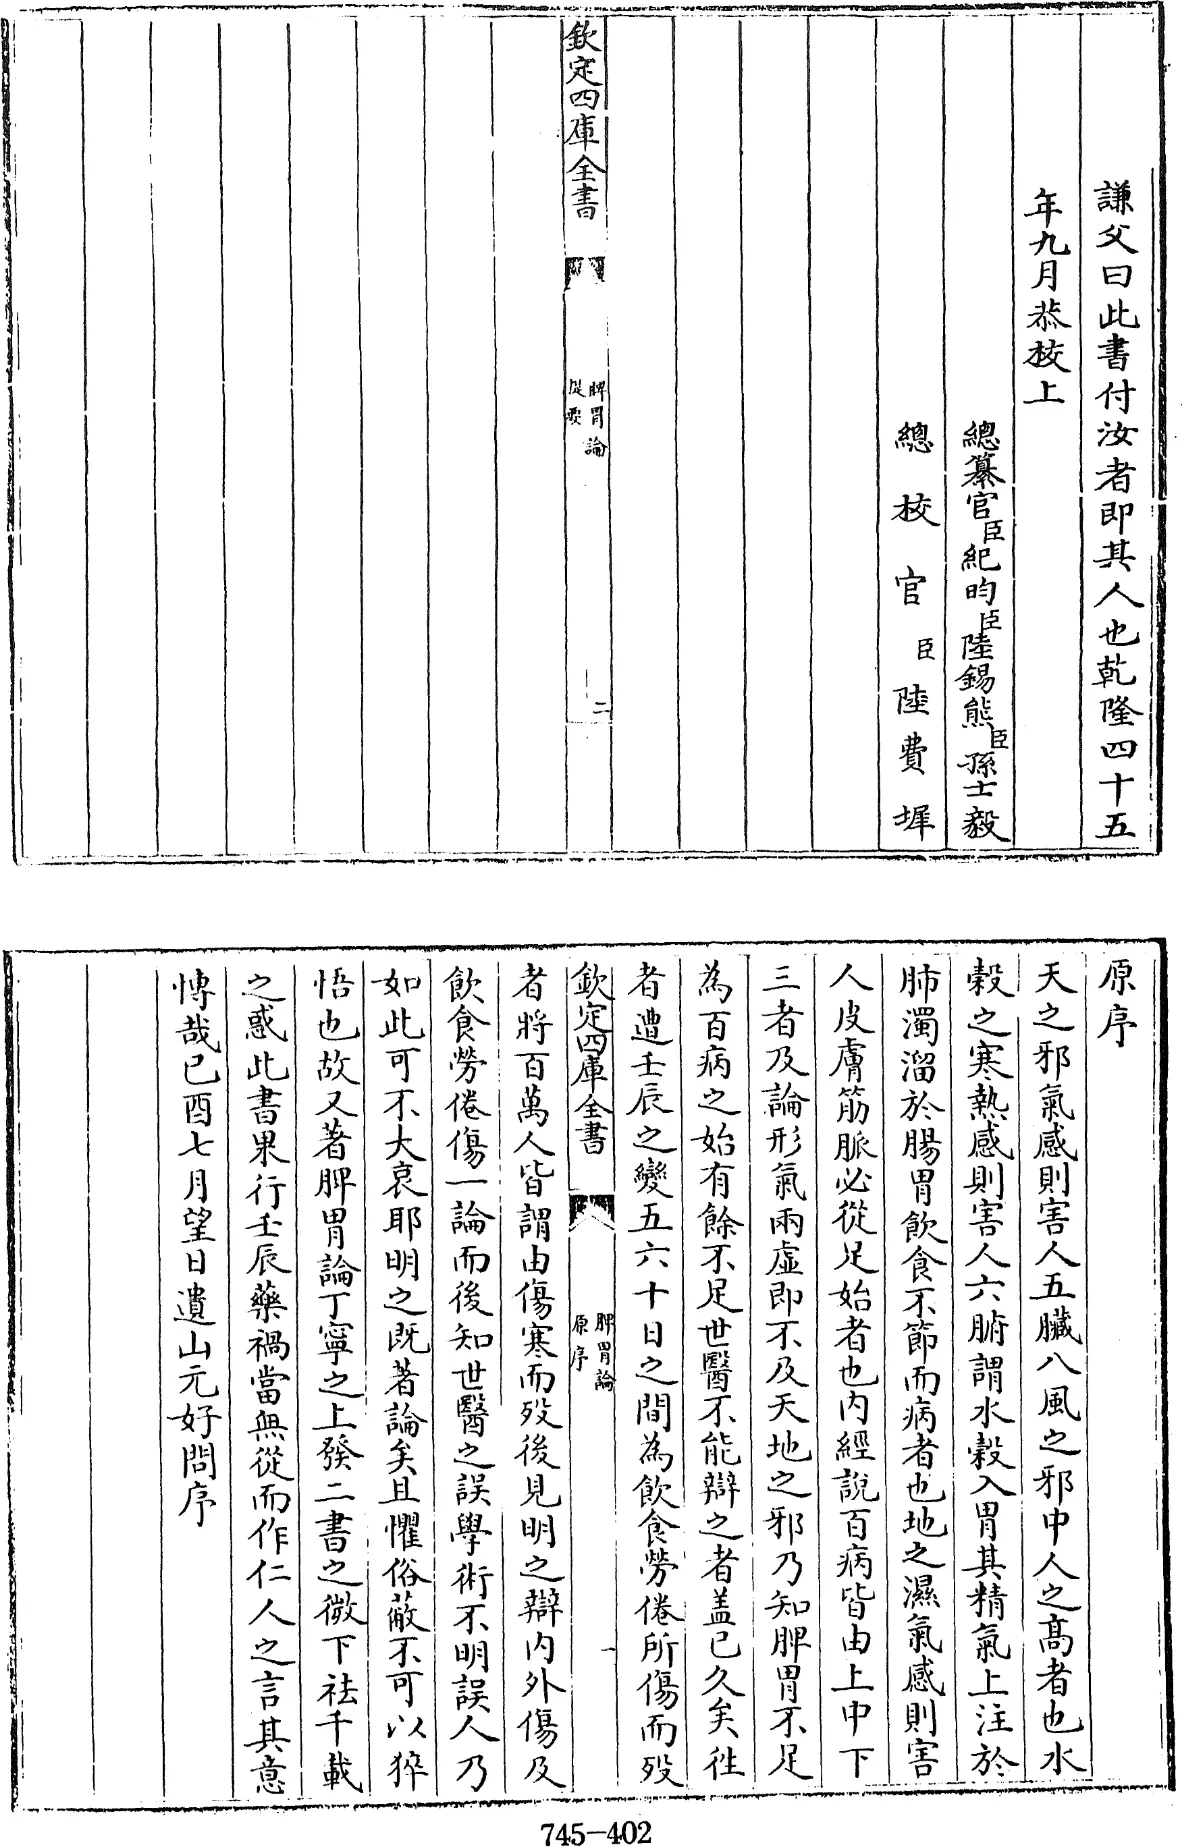 謙父曰此書付汝者即其人也乾隆四十五
年九月恭校上
總纂官臣紀昀臣陸錫熊臣孫士毅
總校官臣陸費墀
欽定四庫全書
脾胃論
提要
二
原序
天之邪氣感則害人五臟八風之邪中人之高者也水
穀之寒熱感則害人六腑謂水穀入胃其精氣上注於
肺濁溜於腸胃飲食不節而病者也地之濕氣感則害
人皮膚筋脈必從足始者也内經說百病皆由上中下
三者及論形氣兩虛即不及天地之邪乃知脾胃不足
為百病之始有餘不足世醫不能辯之者盖已久矣徃
者遭壬辰之變五六十日之間為飲食勞倦所傷而殁
欽定四庫全書
脾胃論
原序
一
者將百萬人皆謂由傷寒而殁後見明之辯内外傷及
飲食勞倦傷一論而後知世醫之誤學術不明誤人乃
如此可不大哀耶明之既著論矣且懼俗蔽不可以猝
悟也故又著脾胃論丁寧之上發二書之微下祛千載
之惑此書果行壬辰藥禍當無從而作仁人之言其意
博哉己酉七月望日遺山元好問序
745-402